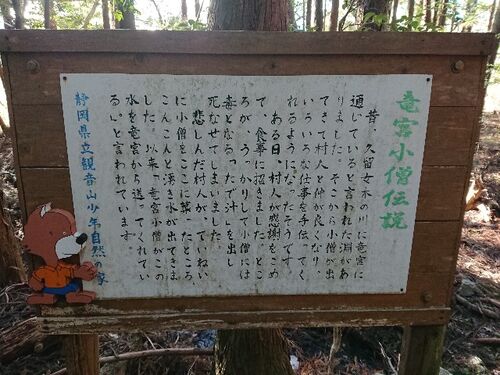 竜宮小僧伝説
昔、久留女木の川に竜宮に
通じていると言われた淵があ
りました。そこから小僧が出
てきて村人と仲が良くなり、
いろいろな仕事を手伝ってく
れるようになったそうです。
ある日、村人が感謝をこめ
て、食事に招きました。とこ
ろが、うっかりして、小僧には
毒となる「たで汁」を出し
死なせてしまいました。
悲しんだ村人が、ていねい
に小僧をここに葬ったところ、
こんこんと湧き水が出てきま
した。以来「竜宮小僧がこの
水を竜宮から送ってくれてい
る」と言われています。
静岡県立観音山少年自然の家